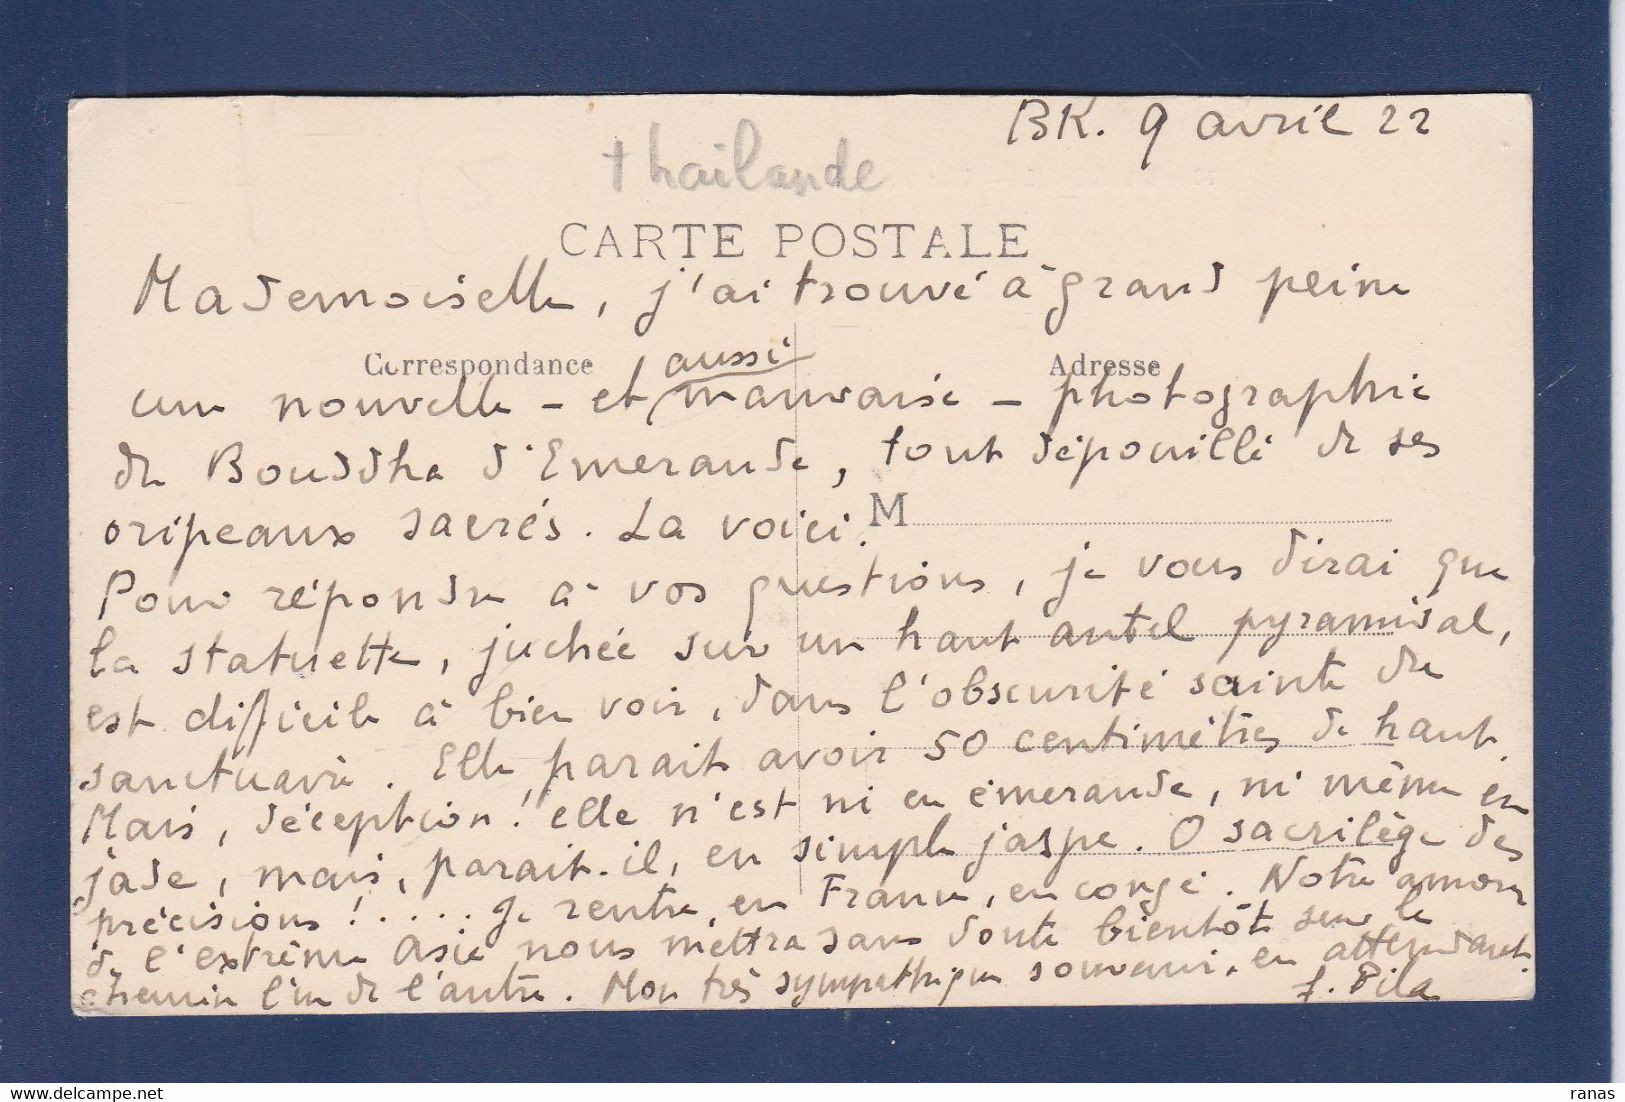 BK. 9 avril 22
thailande
CARTE POSTALE
Mademoiselle, j'ai trouvé à grand peine
Correspondance
Adresse
une nouvelle - et aussi mauvaise - photographie
du Bouddha d'Emeraude, tout dépouillé de ses
oripeaux sacrés. La voici.
M
Pour répondre à vos questions, je vous dirai que
la statuette, juchée sur un haut autel pyramidal,
est difficile à bien voir, dans l'obscurité sainte du
sanctuaire. Elle parait avoir 50 centimètres de haut.
Mais, déception! elle n'est ni en émeraude, ni même en
jade, mais, parait-il, en simple jaspe. O sacrilège des
précisions!..... Je rentre, en France, en congé. Notre amour
de l'extrême Asie nous mettra sans doute bientôt sur le
chemin l'un de l'autre. Mon très sympathique souvenir, en attendant.
f. Pila
ranas